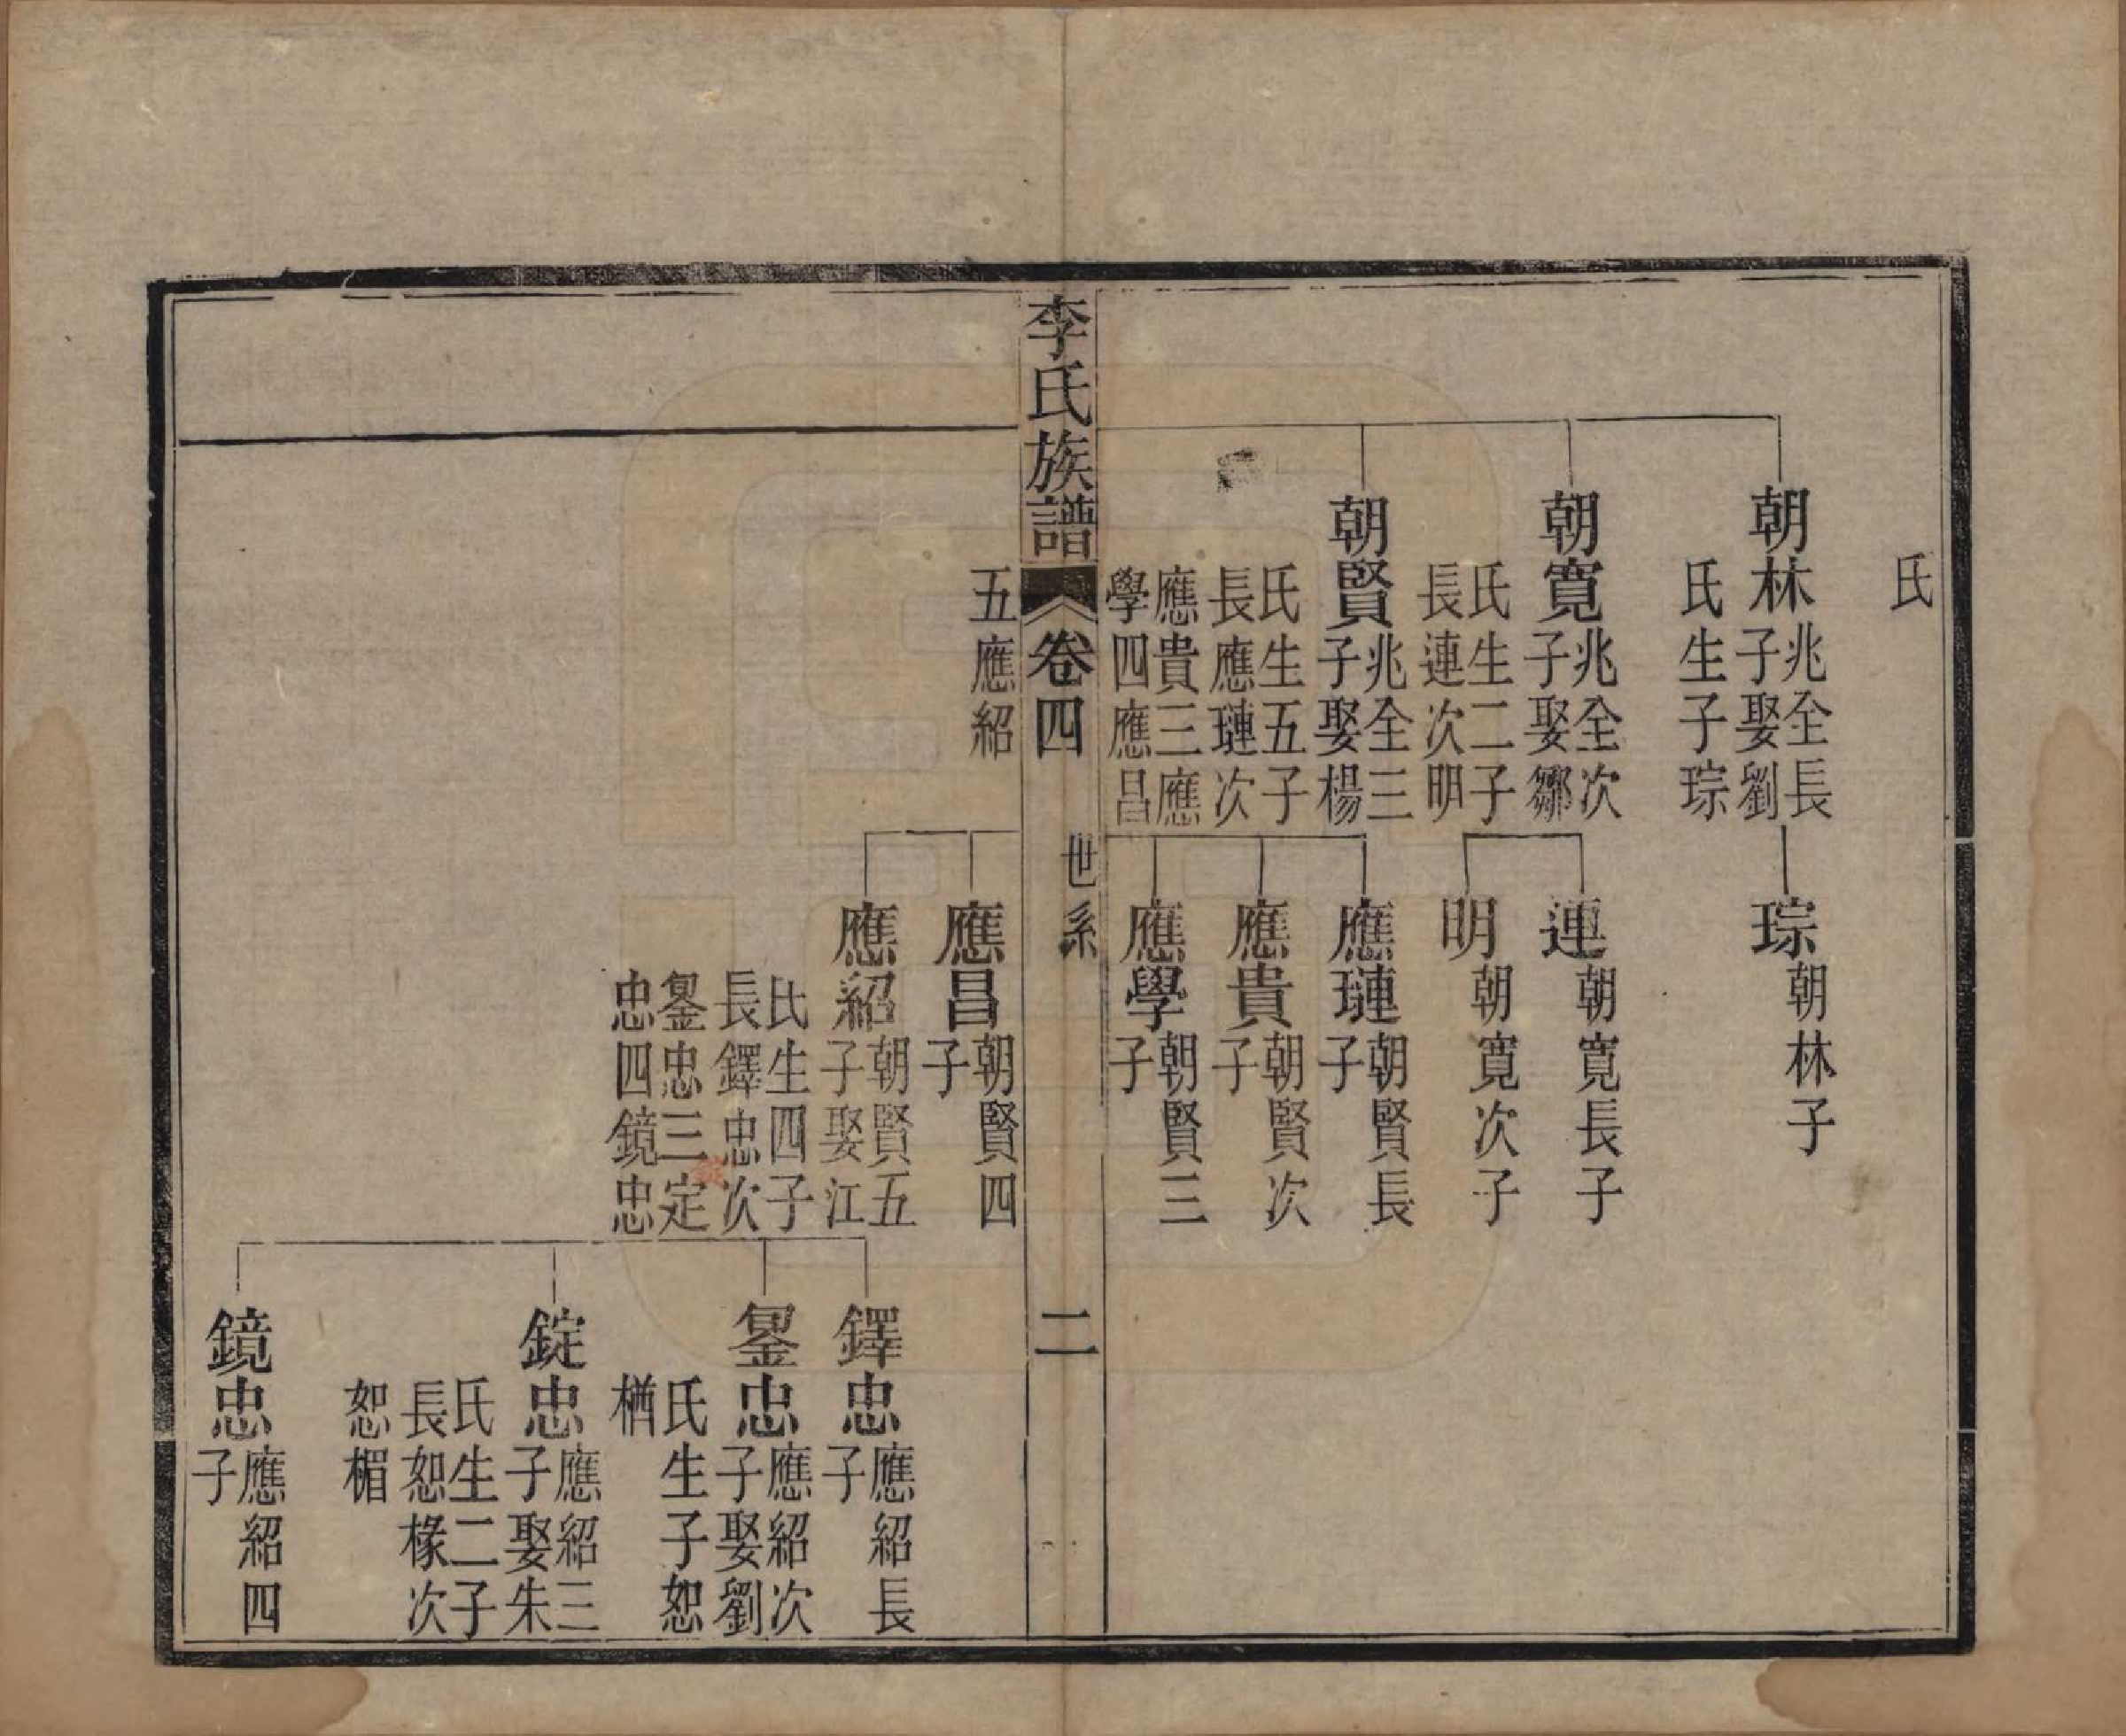 氏
朝林兆全長
子娶劉
氏生子琮
朝寬兆全次
子娶鄒
氏生二子
長連次明
朝賢兆全三
子娶楊
氏生五子
長應璉次
應貴三應
學四應昌
五應紹
琮朝林子
連朝寬長子
明朝寬次子
應璉朝賢長
子
應貴朝賢次
子
應學朝賢三
子
李氏族譜
卷四
世系
二
應昌朝賢四
子
應紹朝賢五
子娶江
氏生四子
長鐸忠次
忠三定
忠四鏡忠
鐸忠應紹長
子
忠應紹次
子娶劉
氏生子恕
楢
錠忠應紹三
子娶朱
氏生二子
長恕椽次
恕楣
鏡忠應紹四
子